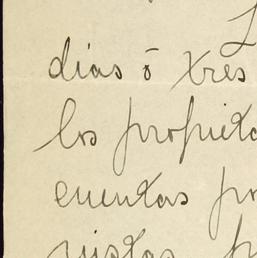 L
dias ó tres
los propieta
cuentas po
vistas p